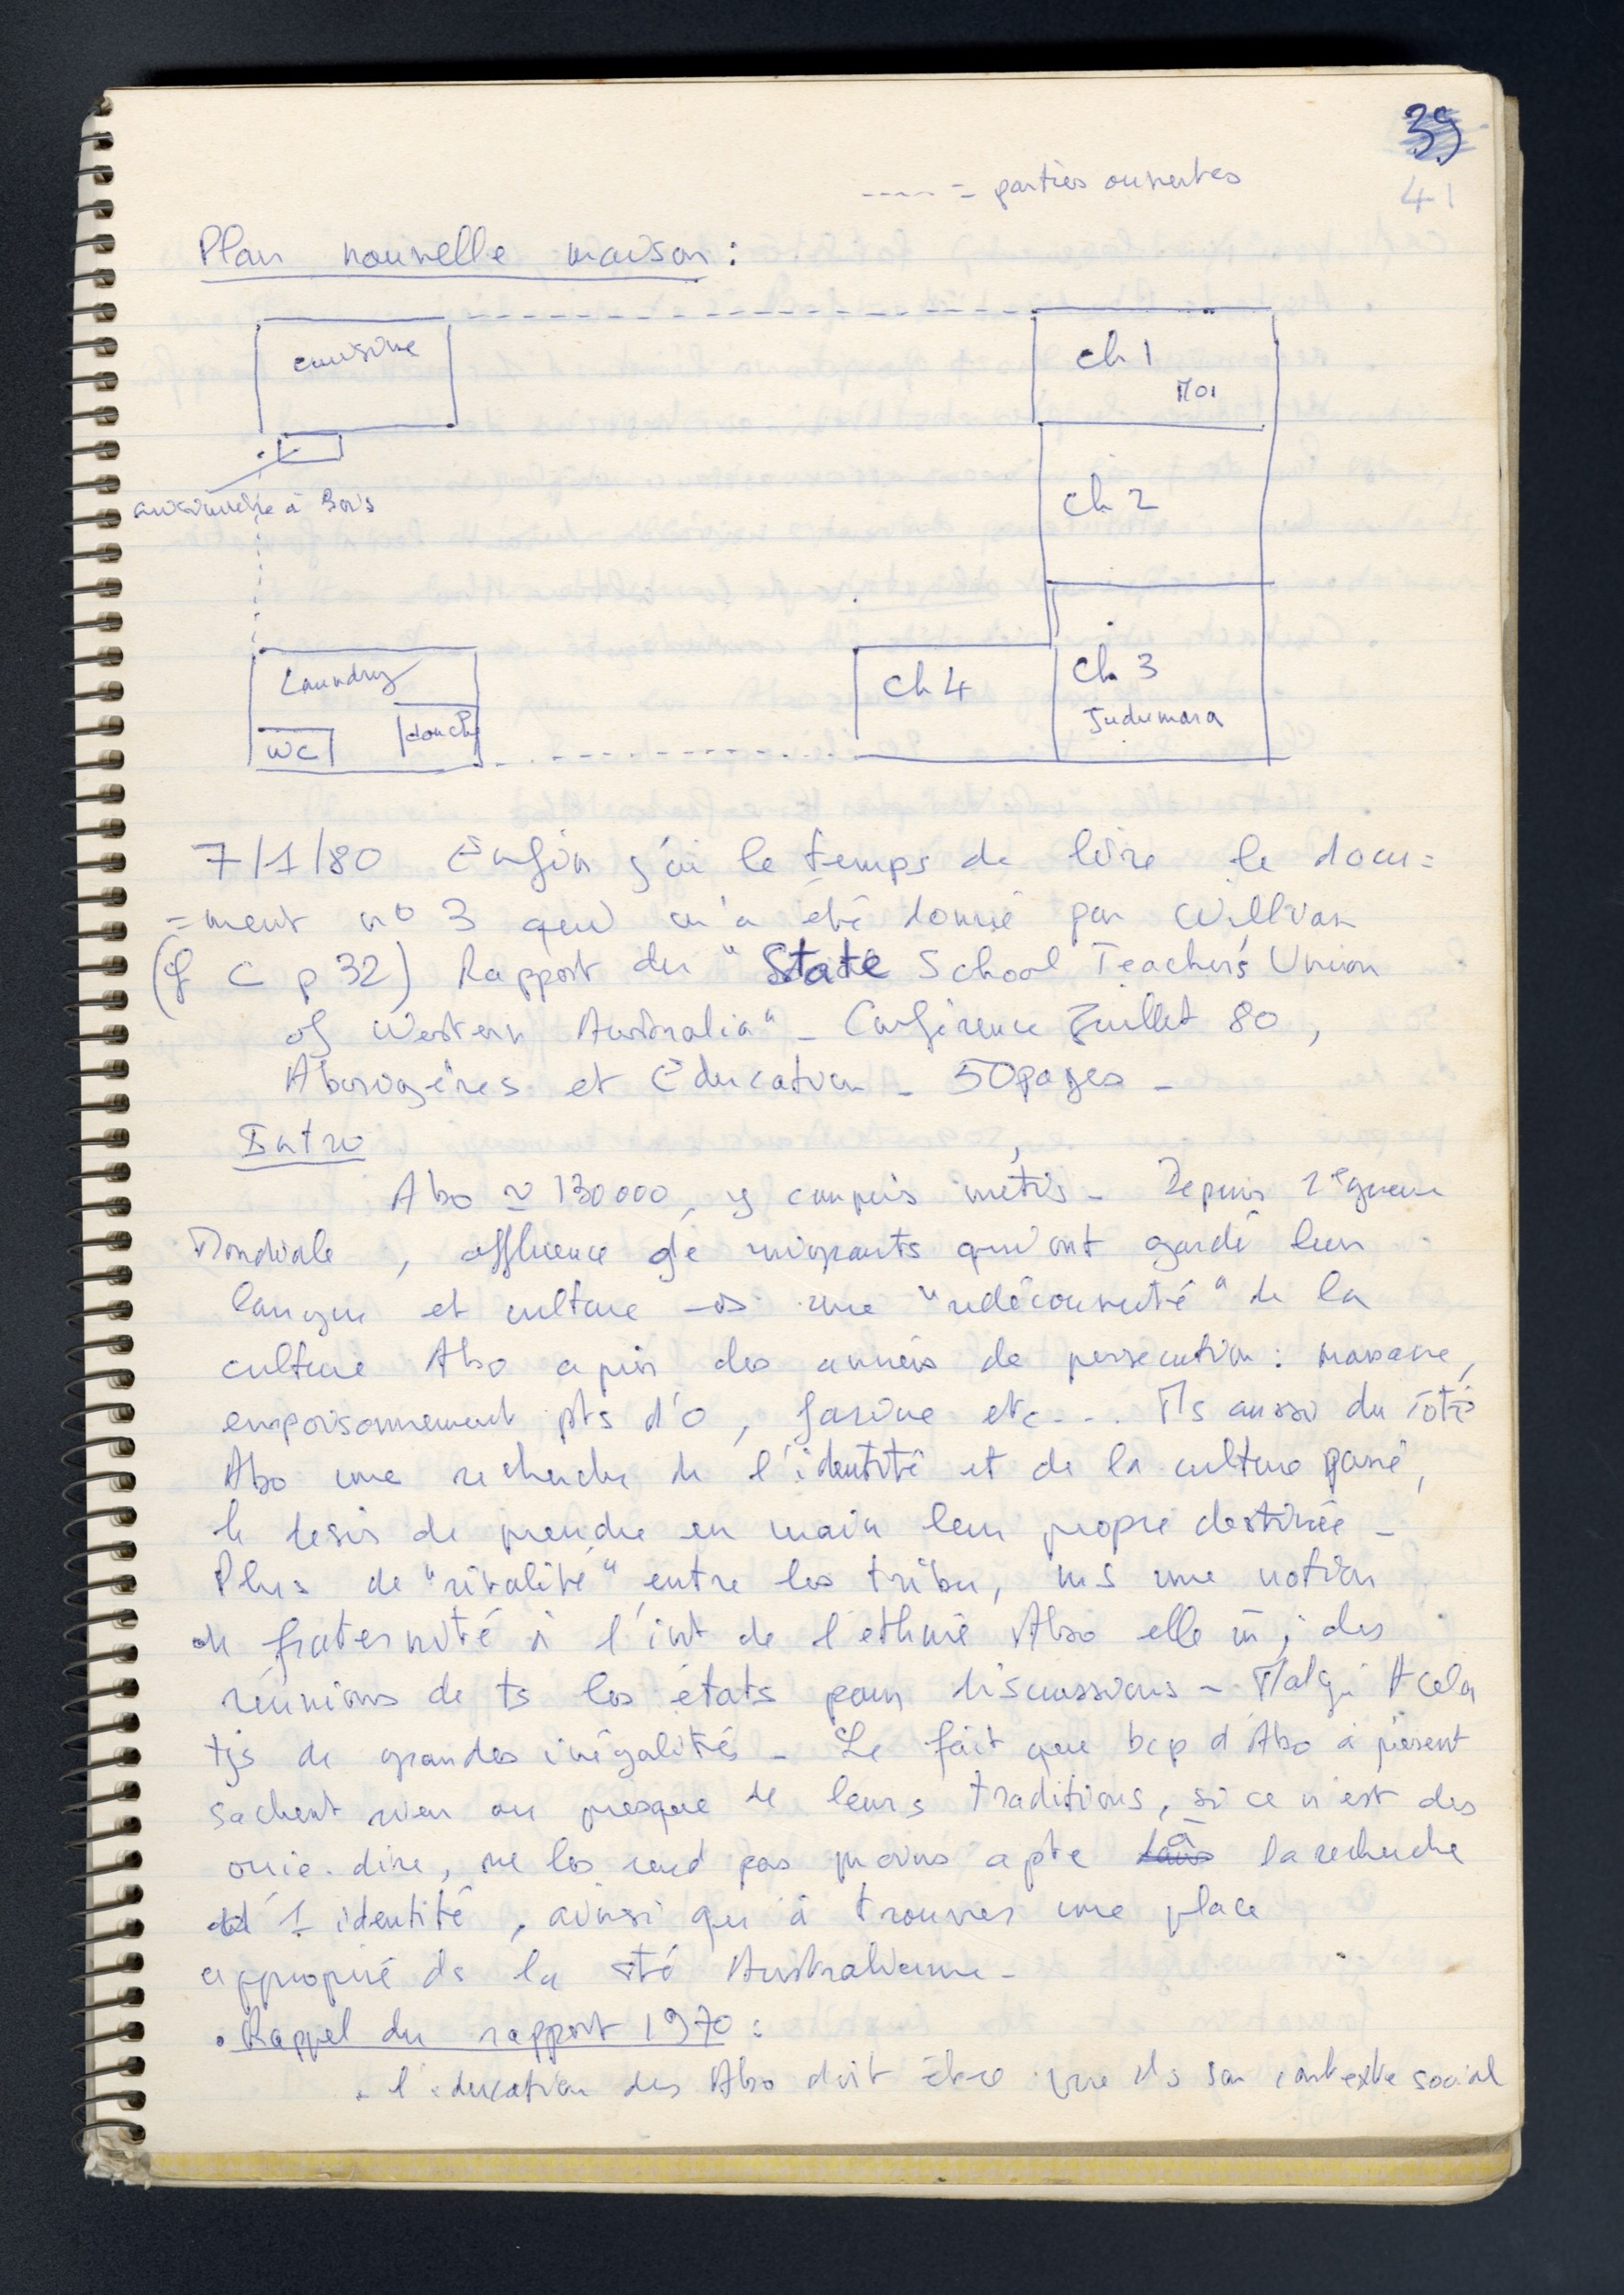 39
41
---- = parties ouvertes
Plan nouvelle maison :
cuisine
ch 1
Moi
cuisinière à Bois
ch 2
Laundry
ch 4
ch. 3
Judumara
WC
douche
7/1/80 Enfin j'ai le temps de lire le docu=
=ment no 3 qui m'a été donné par William
(cf C p 32) Rapport du "State School Teacher's Union
of Western Australia" - Conférence Juillet 80,
Aborigènes et Education - 50 pages -
Intro
Abo ≃ 130000, y compris métis - Depuis 2e guerre
Mondiale, affluence de migrants qui ont gardé leur
langue et culture → une "redécouverte" de la
culture Abo après des années de persecution : massacre,
empoisonnement pts d'o, farine etc... Ms aussi du côté
Abo une recherche de l'identité et de la culture passé,
le desir de prendre en main leur propre destinée -
Plus de "rivalité" entre les tribu, ms une notion
de fraternité à l'int de l'ethnie Abo elle m̄ ; des
réunions de ts les états pour discussions - Malgré tt cela
tjs de grandes inégalités - Le fait que bcp d'Abo à présent
sachent rien ou presque de leurs traditions, si ce n'est des
ouie-dire, ne les rend pas moins apte à la recherche
d'1 identité, ainsi qu'à trouver une place
approprié ds la sté Australienne -
. Rappel du rapport 1970 :
- l'education des Abo doit être vue ds son contexte social